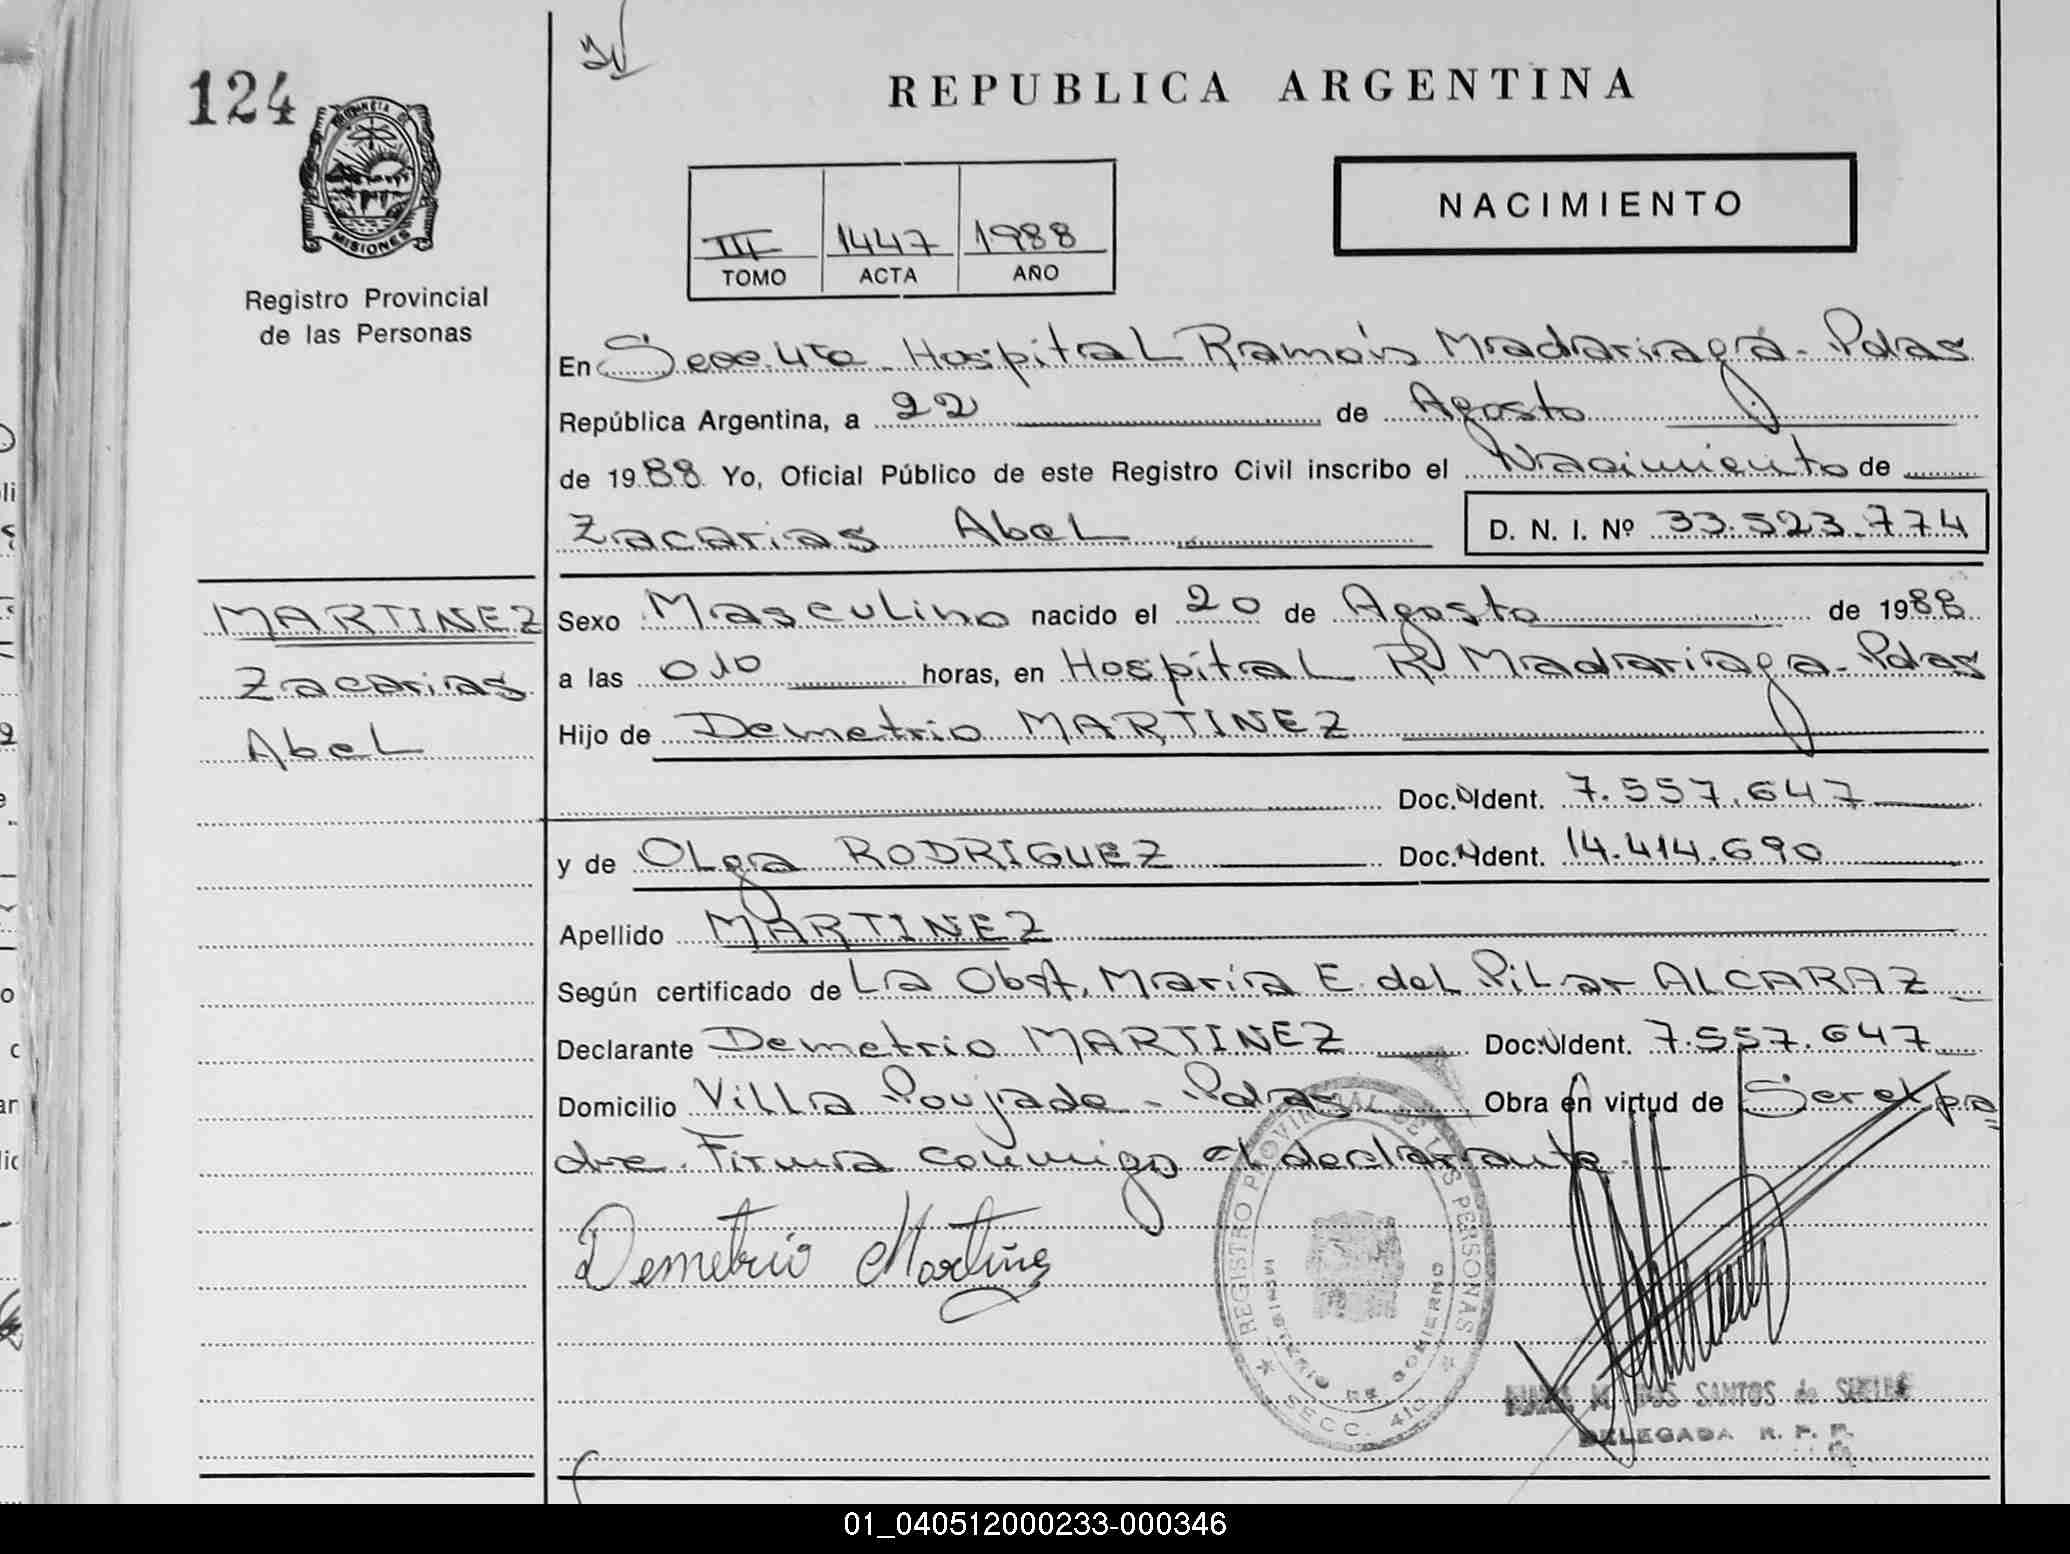 124
REPUBLICA ARGENTINA
NACIMIENTO
III 1447 1988
TOMO ACTA AÑO
MISIONES
Registro Provincial
de las Personas
En Secc. 4ta. Hospital Ramón Madariaga - Pdas
República Argentina, a 22 de Agosto
de 1988 Yo, Oficial Público de este Registro Civil inscribo el Nacimiento de
Zacarias Abel D. N. I. Nº 33.523.774
MARTINEZ
Zacarias
Abel
Sexo Masculino nacido el 20 de Agosto de 1988
a las 0,10 horas, en Hospital R. Madariaga - Pdas
Hijo de Demetrio MARTINEZ
Doc. Ident. 7.557.647
y de Olga RODRIGUEZ Doc. Ident. 14.414.690
Apellido MARTINEZ
Según certificado de La Obst. María E. del Pilar ALCARAZ
Declarante Demetrio MARTINEZ Doc. Ident. 7.557.647
Domicilio Villa Poujade - Pdas Obra en virtud de Ser el pa
dre. Firma conmigo el declarante
Demetrio Martinez
REGISTRO PROVINCIAL DE LAS PERSONAS
MINISTERIO DE GOBIERNO
SECC. 4ta
M. DOS SANTOS de
DELEGADA R. P. P.
01_040512000233-000346